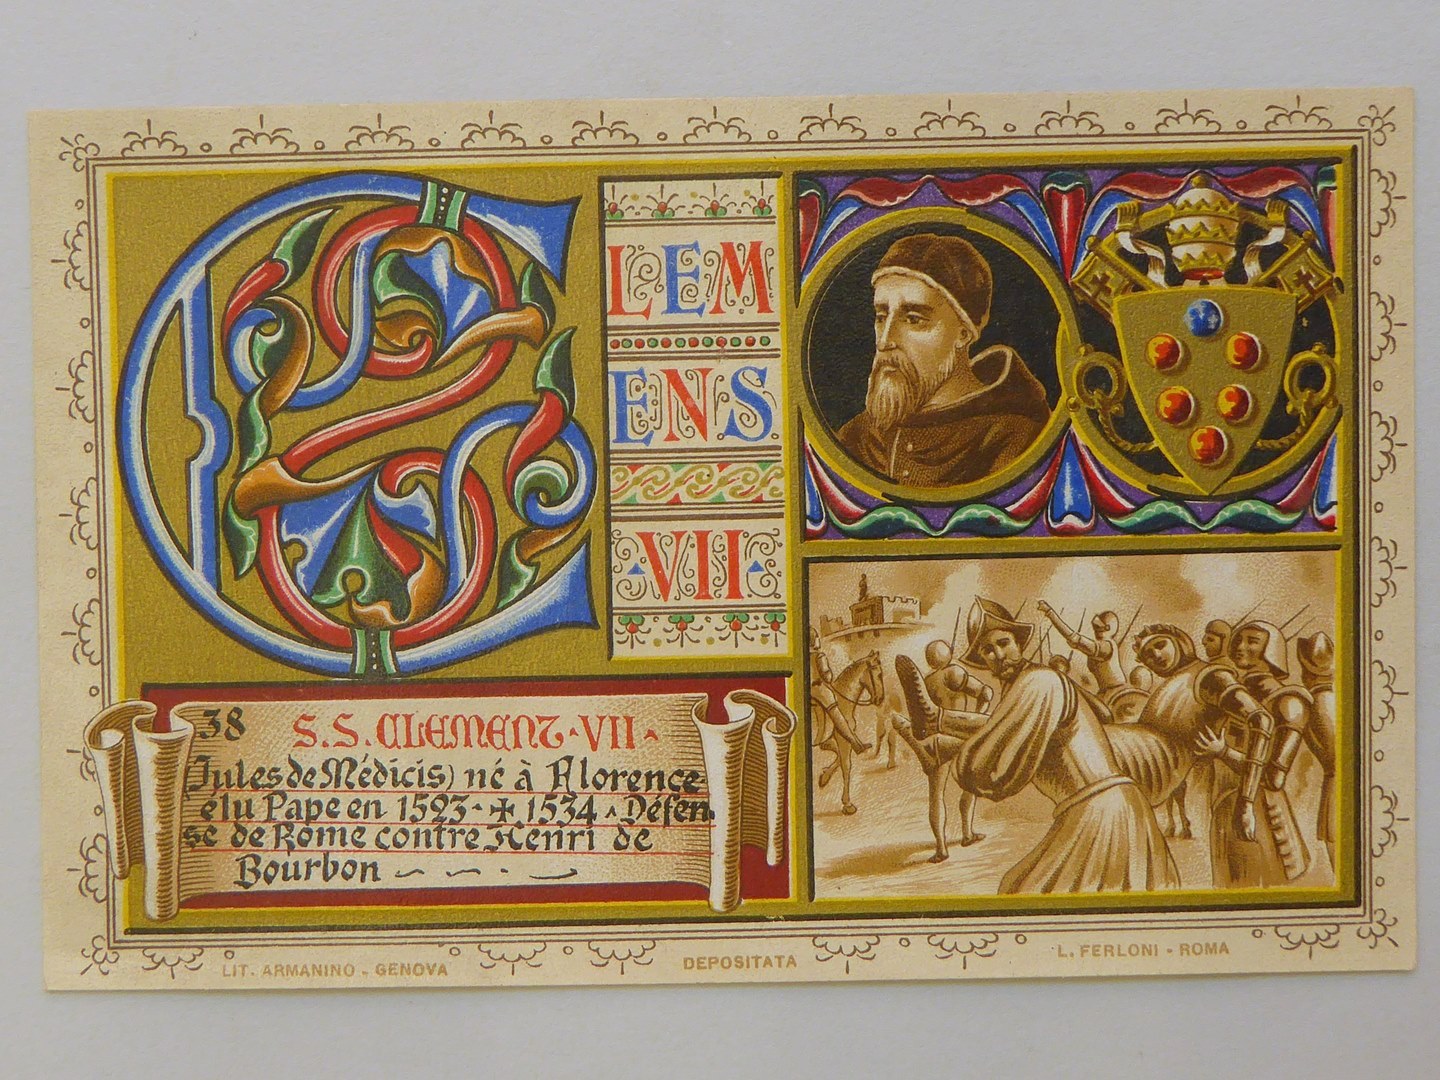 C
LEM
ENS
·VII·
38 S.S. CLEMENT·VII·
(Jules de Médicis) né à Florence-
élu Pape en 1523-✠ 1534 · Défen-
se de Rome contre Henri de
Bourbon
LIT. ARMANINO - GENOVA
DEPOSITATA
L. FERLONI - ROMA